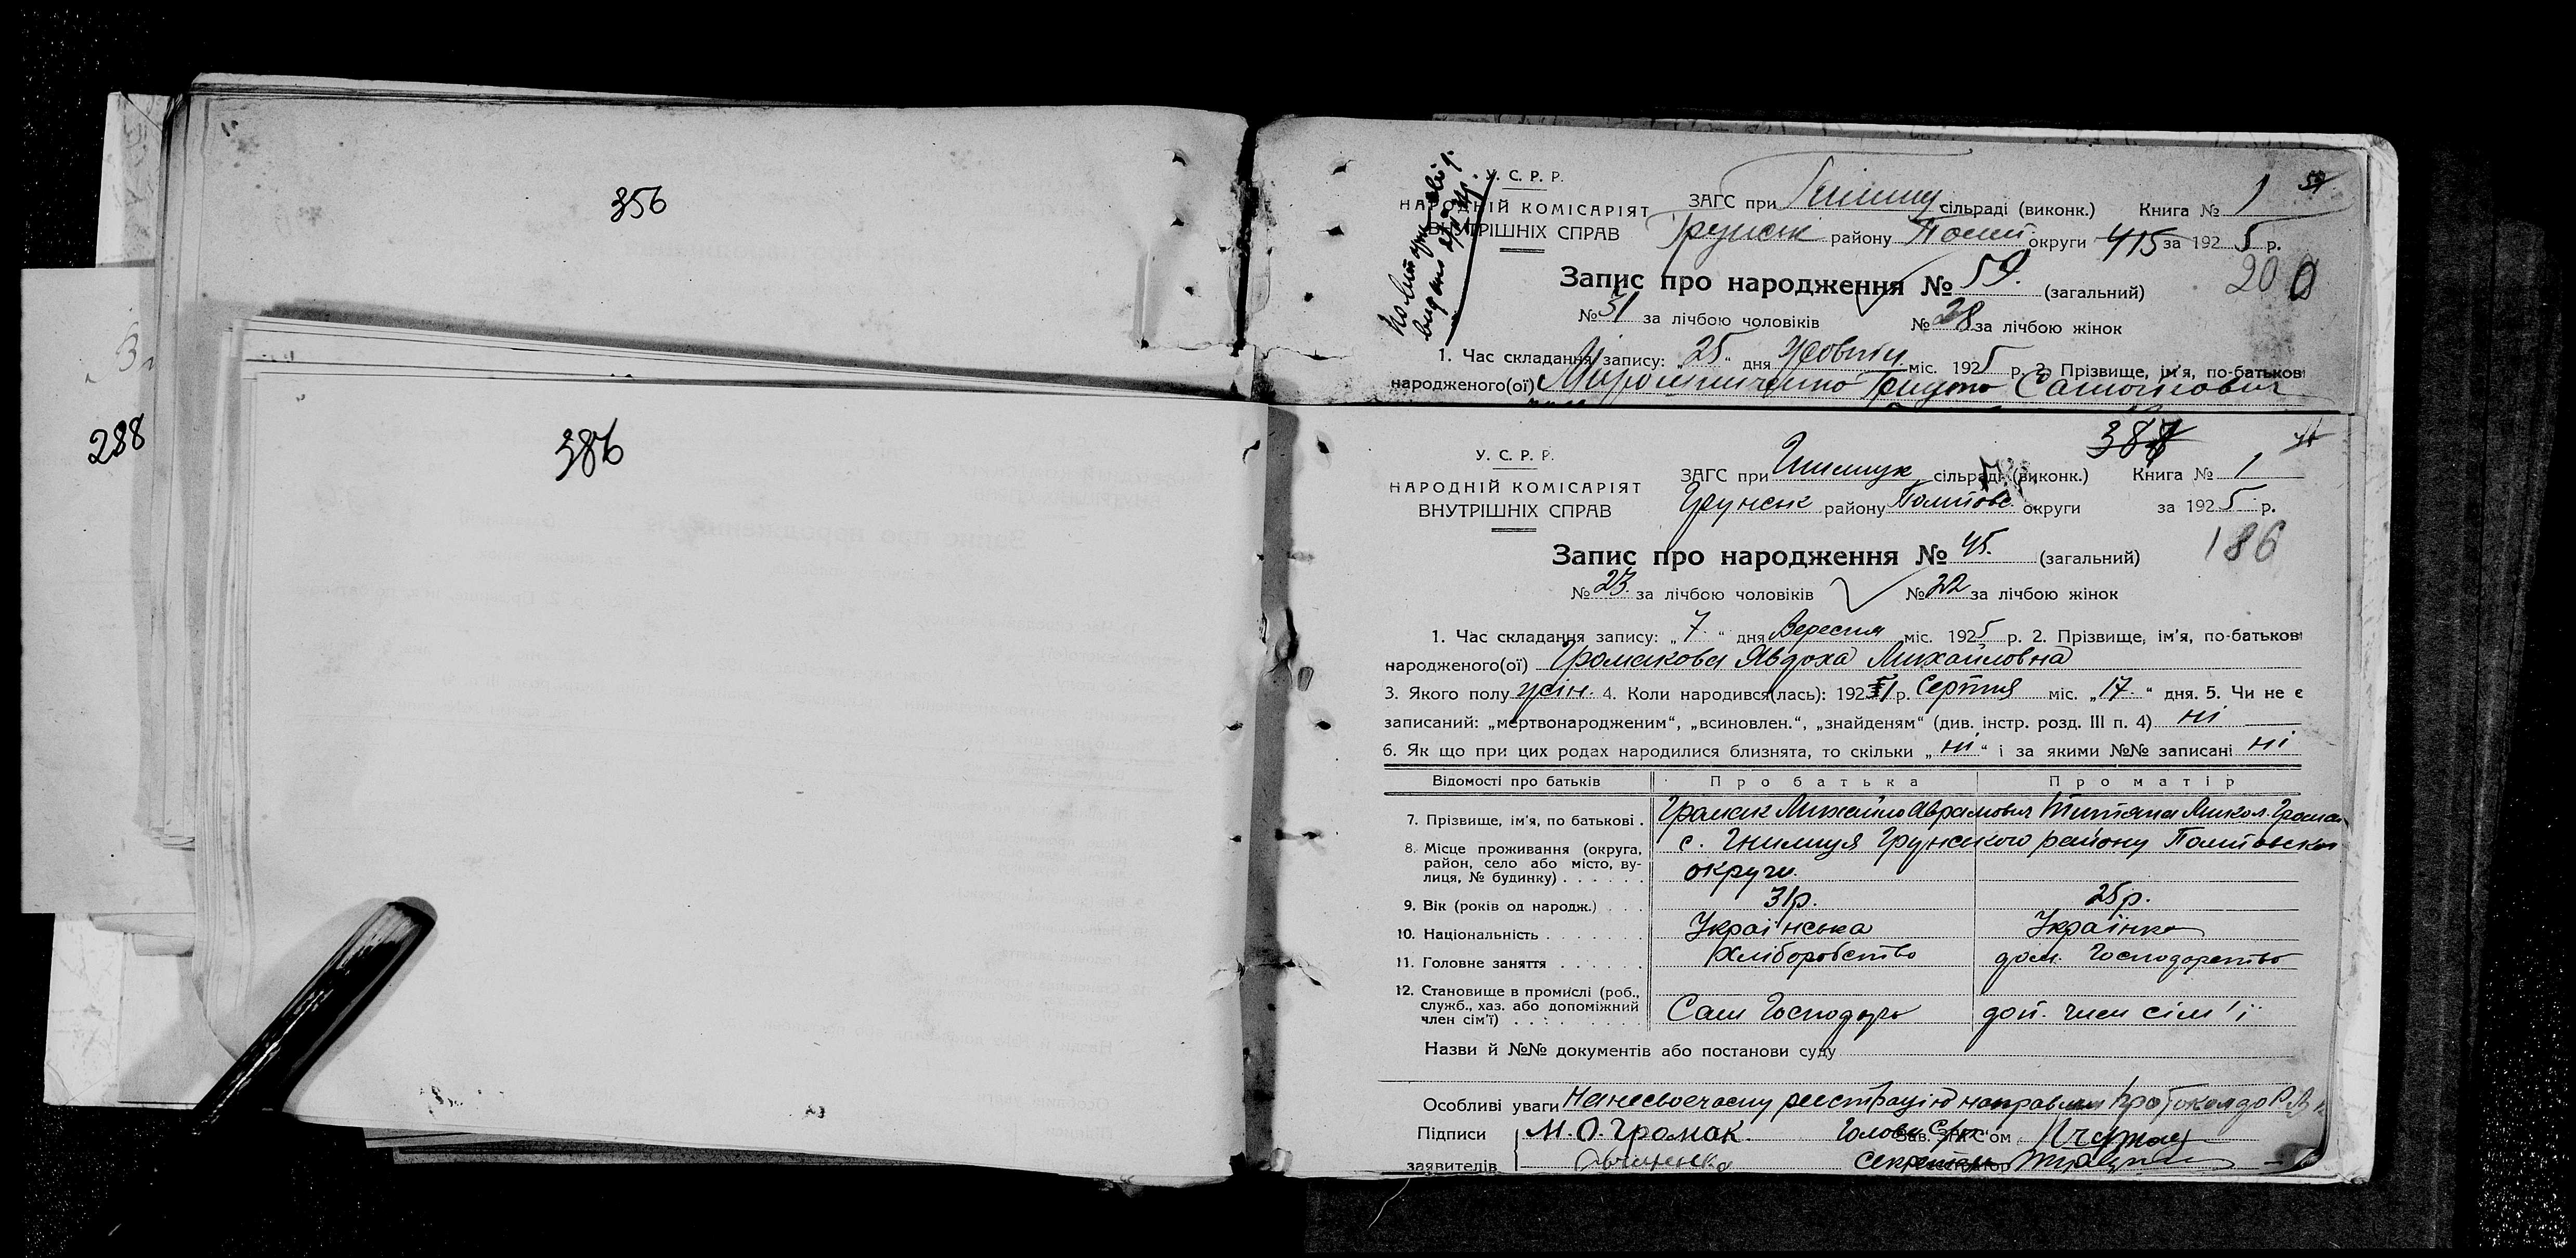 356
288
386
У. С. Р. Р.
НАРОДНІЙ КОМІСАРІЯТ
ВНУТРІШНІХ СПРАВ
ЗАГС при сільраді (виконк.) Книга № 1
Грунськ району Полт округи 415 за 1925 р.
200
Запис про народження № 59. (загальний)
№ 31 за лічбою чоловіків № 28 за лічбою жінок
1. Час складання запису: „25“ дня Жовтн міс. 1925 р. 2. Прізвище, ім'я, по-батькові
народженого(ої) Мирошниченко
387
У. С. Р. Р.
НАРОДНІЙ КОМІСАРІЯТ
ВНУТРІШНІХ СПРАВ
ЗАГС при сільраді (виконк.) Книга № 1
Грунськ району Полтовс. округи за 1925 р.
186
Запис про народження № 45. (загальний)
№ 23. за лічбою чоловіків № 22 за лічбою жінок
1. Час складання запису: „7.“ дня Вересня міс. 1925 р. 2. Прізвище, ім'я, по-батькові
народженого(ої) Громакова Явдоха Михайловна
3. Якого полу жін. 4. Коли народився(лась): 192 р. Серпня міс. „17.“ дня. 5. Чи не є
записаний: „мертвонародженим“, „всиновлен.“, „знайденям“ (див. інстр. розд. III п. 4) ні
6. Як що при цих родах народилися близнята, то скільки „ні“ і за якими №№ записані ні
Відомості про батьків Про батька Про матір
7. Прізвище, ім'я, по батькові . Громак Михайло Аврамович Титяна Микол. Громак
8. Місце проживання (округа, район, село або місто, вулиця, № будинку) . . . . . . с. Гнилиця Грунського району Полтовської
округи.
9. Вік (років од народж.) . . . 31р. 25р.
10. Національність . . . . . . . Українська Українка
11. Головне заняття . . . . . . Хліборобство дом. Господарство
12. Становище в промислі (роб., служб., хаз. або допоміжний член сім'ї) . . . . . . . Сам Господарь доп. член сім'ї
Назви й №№ документів або постанови суду
Особливі уваги На несвоечасну реєстрацію направлен протокол до
Підписи М. О. Громак. Голова Зав. ЗАГС'ом
заявителів Секретарь